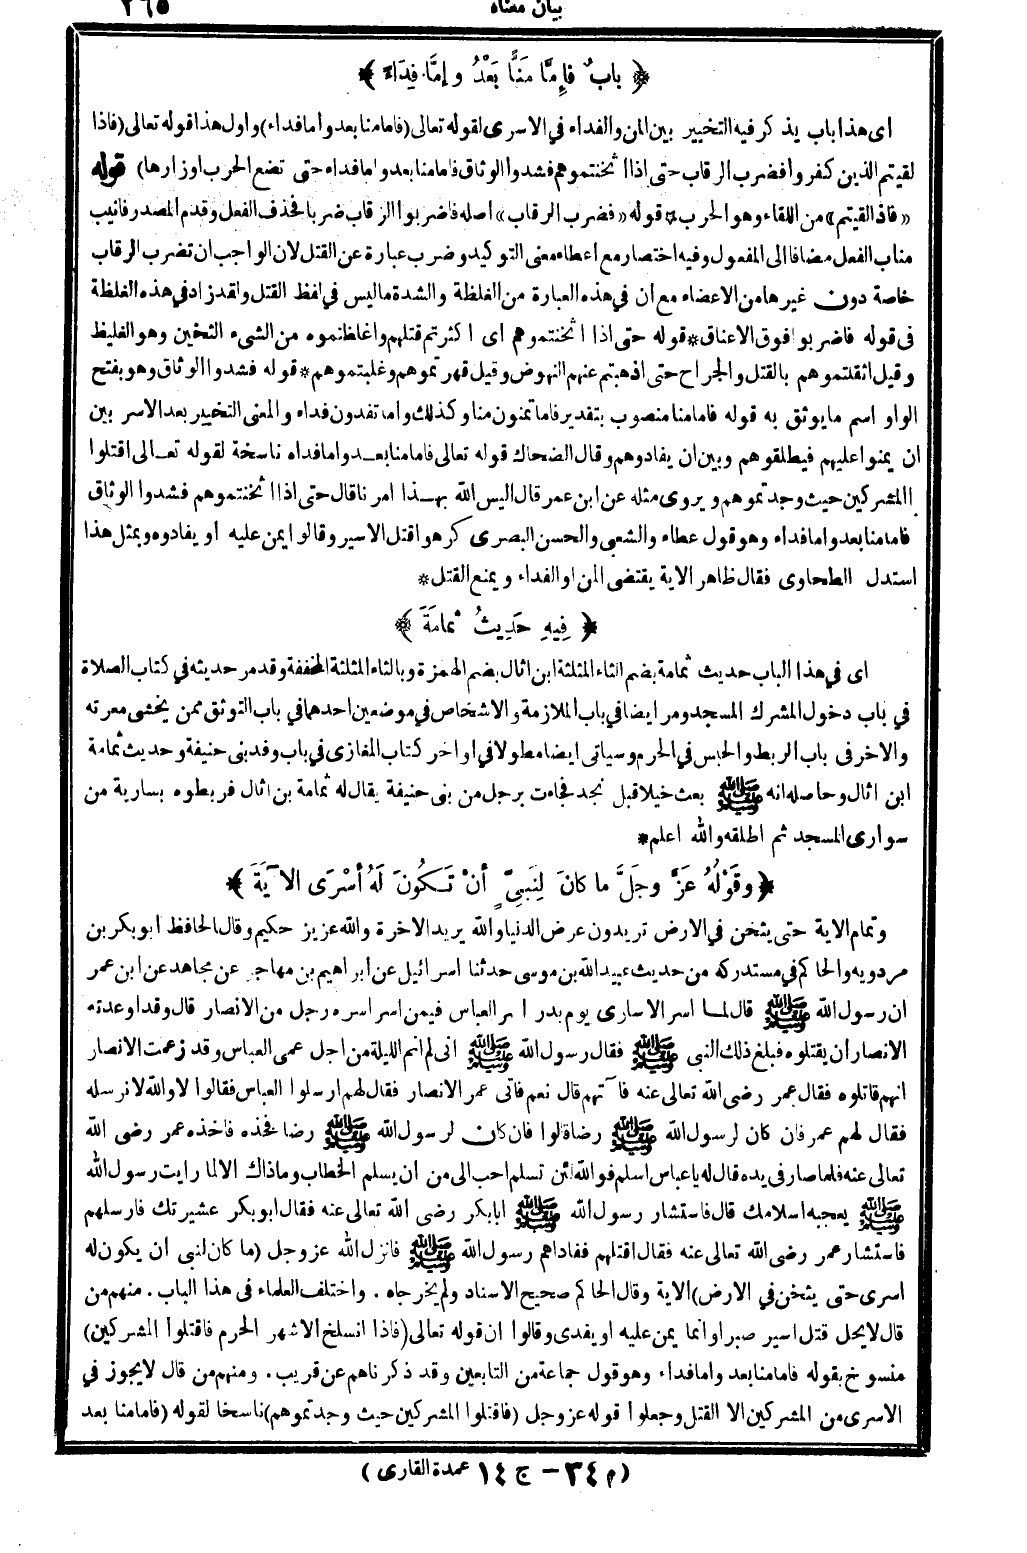 بيان معناه ٢٦٥
﴿ باب فإما منا بعد وإما فداء ﴾
اى هذا باب يذكر فيه التخيير بين المن والفداء في الاسرى لقوله تعالى (فامامنا بعد واما فداء) واول هذا قوله تعالى (فاذا
لقيتم الذين كفروا فضرب الرقاب حتى اذا اثخنتموهم فشدوا الوثاق فامامنا بعد واما فداء حتى تضع الحرب اوزارها) قوله
«فاذا لقيتم» من اللقاء وهو الحرب * قوله «فضرب الرقاب» اصله فاضربوا الرقاب ضربا فحذف الفعل وقدم المصدر فانيب
مناب الفعل مضافا الى المفعول وفيه اختصار مع اعطاء معنى التوكيد وضرب عبارة عن القتل لان الواجب ان تضرب الرقاب
خاصة دون غيرها من الاعضاء مع ان في هذه العبارة من الغلظة والشدة ماليس في لفظ القتل ولقد زاد في هذه الغلظة
فى قوله فاضربوا فوق الاعناق * قوله حتى اذا اثخنتموهم اى اكثرتم قتلهم واغلظتموه من الشىء الثخين وهو الغليظ
وقيل اثقلتموهم بالقتل والجراح حتى اذهبتم عنهم النهوض وقيل قهرتموهم وغلبتموهم * قوله فشدوا الوثاق وهو بفتح
الواو اسم مايوثق به قوله فامامنا منصوب بتقدير فاما تمنون منا وكذلك واما تفدون فداء والمعنى التخيير بعد الاسر بين
ان يمنوا عليهم فيطلقوهم وبين ان يفادوهم وقال الضحاك قوله تعالى فامامنا بعد واما فداء ناسخة لقوله تعالى اقتلوا
المشركين حيث وجدتموهم ويروى مثله عن ابن عمر قال اليس الله بهذا امرنا قال حتى اذا اثخنتموهم فشدوا الوثاق
فامامنا بعد واما فداء وهو قول عطاء والشعبى والحسن البصرى كرهوا قتل الاسير وقالوا يمن عليه أو يفادوه وبمثل هذا
استدل الطحاوى فقال ظاهر الاية يقتضى المن او الفداء ويمنع القتل *
﴿ فيه حديث ثمامة ﴾
اى في هذا الباب حديث ثمامة بضم الثاء المثلثة ابن اثال بضم الهمزة وبالثاء المثلثة المخففة وقد مر حديثه في كتاب الصلاة
في باب دخول المشرك المسجد ومر ايضا في باب الملازمة والاشخاص في موضعين احدهما في باب التوثق ممن يخشى معرته
والاخر فى باب الربط والحبس في الحرم وسياتى ايضا مطولا في اواخر كتاب المغازى في باب وفد بنى حنيفة وحديث ثمامة
ابن اثال وحاصله انه ﷺ بعث خيلا قبل نجد فجاءت برجل من بنى حنيفة يقال له ثمامة بن اثال فربطوه بسارية من
سوارى المسجد ثم اطلقه والله اعلم *
﴿ وقوله عز وجل ما كان لنبي أن تكون له أسرى الآية ﴾
وتمام الاية حتى يثخن في الارض تريدون عرض الدنيا والله يريد الاخرة والله عزيز حكيم وقال الحافظ ابو بكر بن
مردويه والحاكم في مستدركه من حديث عبيد الله بن موسى حدثنا اسرائيل عن ابراهيم بن مهاجر عن مجاهد عن ابن عمر
ان رسول الله ﷺ قال لما اسر الاسارى يوم بدر اسر العباس فيمن اسر اسره رجل من الانصار قال وقد اوعدته
الانصار أن يقتلوه فبلغ ذلك النبى ﷺ فقال رسول الله ﷺ انى لم انم الليلة من اجل عمى العباس وقد زعمت الانصار
انهم قاتلوه فقال عمر رضى الله تعالى عنه فآتهم قال نعم فاتى عمر الانصار فقال لهم ارسلوا العباس فقالوا لا والله لانرسله
فقال لهم عمر فان كان لرسول الله ﷺ رضا قالوا فان كان لرسول الله ﷺ رضا فخذه فاخذه عمر رضى الله
تعالى عنه فلما صار فى يده قال له ياعباس اسلم فوالله لئن تسلم احب الى من ان يسلم الخطاب وماذاك الا لما رايت رسول الله
ﷺ يعجبه اسلامك قال فاستشار رسول الله ﷺ ابابكر رضى الله تعالى عنه فقال ابو بكر عشيرتك فارسلهم
فاستشار عمر رضى الله تعالى عنه فقال اقتلهم ففاداهم رسول الله ﷺ فانزل الله عز وجل (ما كان لنبى ان يكون له
اسرى حتى يثخن في الارض) الاية وقال الحاكم صحيح الاسناد ولم يخرجاه . واختلف العلماء فى هذا الباب . منهم من
قال لايحل قتل اسير صبرا وانما يمن عليه او يفدى وقالوا ان قوله تعالى (فاذا انسلخ الاشهر الحرم فاقتلوا المشركين)
منسوخ بقوله فامامنا بعد واما فداء وهو قول جماعة من التابعين وقد ذكرناهم عن قريب . ومنهم من قال لايجوز في
الاسرى من المشركين الا القتل وجعلوا قوله عز وجل (فاقتلوا المشركين حيث وجدتموهم) ناسخا لقوله (فامامنا بعد
(م ٣٤ – ج ١٤ عمدة القارى)